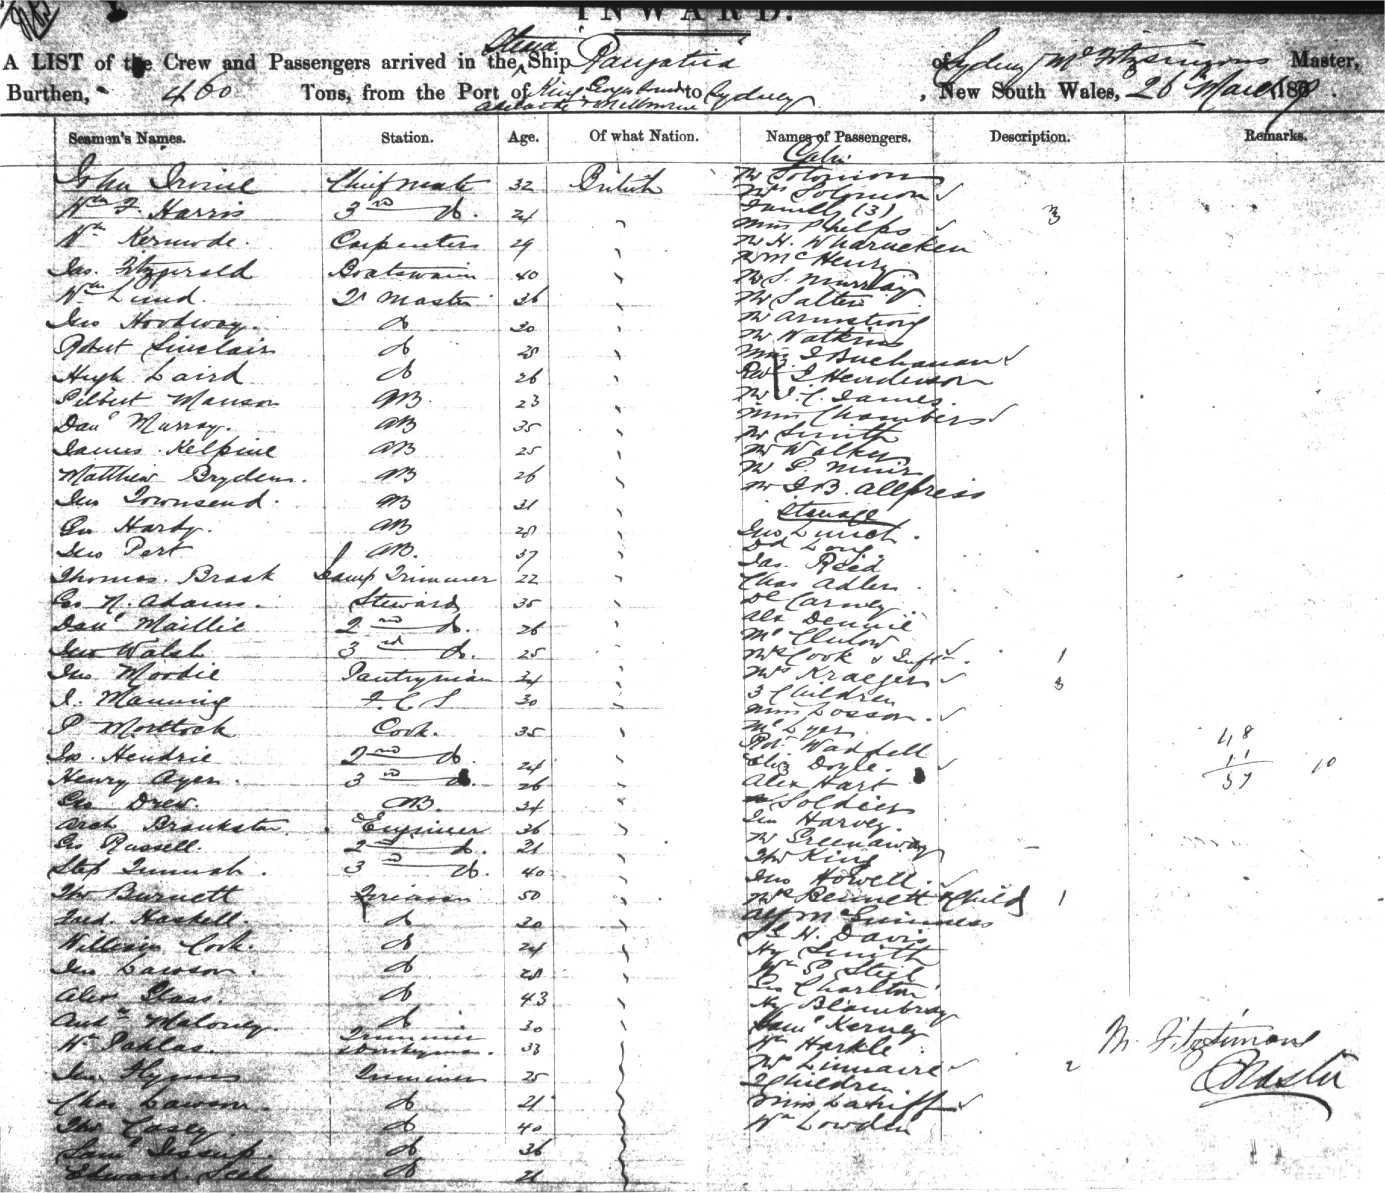 INWARD.
A LIST of the Crew and Passengers arrived in the Ship of Sydney Master,
Burthen, 400 Tons, from the Port of King Georges Sound Adelaide & Melbourne to Sydney , New South Wales, 26 188
Seamen's Names. Station. Age. Of what Nation. Names of Passengers. Description. Remarks.
John Irvine Chief Mate 32 British Mr Solomon
Mrs Solomon
Wm F. Harris 3rd do. 24 Family (3) 3
Miss Phelps
Wm Kermode. Carpenter 29 Mr H.
Mr McHenry
Jas. Fitzgerald Boatswain 40 Mr S. Murray
Wm Lund. Qr Master 36 Mr Salter
Jno do 30 Mr Armstrong
Mr Watkins
Robert Sinclair do 28 Miss J Buchanan
Hugh Laird do 26 Revd J Henderson
Gilbert Manson AB. 23 Mr J. C. James.
Danl Murray. AB 35 Miss Chambers
James Kelpine AB 25 Mr Smith
Mr Walker
Matthew Brydens. AB 26 Mr P. Muir
Jno Townsend. AB 31 Mr J. B. Allpress
Steerage
Geo Hardy. AB 28 Jno Lynch.
Jno Port AB. 37 Dd Long.
Jas. Reid
Thomas. Brask Lamp Trimmer 22 Chas Adler.
Geo N. Adams. Steward 35 Carney
Danl Maillie 2nd do. 26 Alex Dennie
Jno Walsh 3rd do. 25 Mrs Cook & Inft. 1
Jno. Moodie Pantryman 34 Mrs Kraeger 3
3 Children
J. Manning F. C. S 30 Miss Losson.
P Mortlock Cook. 35 48
Robt Waddell 11
Jas. Hendrie 2nd do 24 Eliz Doyle. 57 10
Henry Ayer. 3rd do. 26 Alex Hart
Geo Drew. AB. 34 Soldier
Arch Brankston. Engineer 36 Jno Harvey.
Geo Russell. 2nd do. 31 Mr Greenaway
Thos King
3rd do. 40 Jno Howell.
Thos Burnett Fireman 50 Mrs Bennett & Child 1
Fred. Haskell. do 30 Alf McGuinness
H. Davis
William Cook. do 24 Hy Smith
Jno Lawson. do 28
Geo Charlton
Alex Glass. do 43
Andw Maloney. do 30 Saml Kerney
Wm Trimmer & Donkeyman. 33 Wm Harkle
Jno Flynn Trimmer 25 Mrs 2
2 Children.
Chas Lawson. do 21 Miss
Thos Casey do 40 Wm Lowden
Saml Jessup. do 36
Edward do 21
M. Fitzsimons
Master